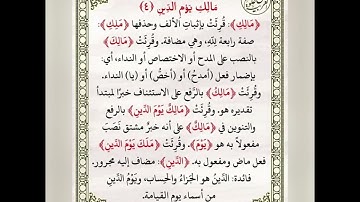 مَالِكِ يَوْمِ الدِّينِ (٤)
﴿مَالِكِ﴾: قُرِئَتْ بإثباتِ الألفِ وحذفِها ﴿مَلِكِ﴾:
صفة رابعة لله، وهي مضافة. وقُرِئَتْ ﴿مَالِكَ﴾
بالنصب على المدح أو الاختصاص أو النداء، أي:
بإضمار فعل (أمدحُ) أو (أخصُّ) أو (يا) النداء.
وقُرِئَتْ ﴿مَالِكُ﴾ بالرَّفع على الاستئناف خبرًا لمبتدأ
تقديره هو. وقُرِئَتْ ﴿مَالِكٌ يَوْمَ الدِّينِ﴾ بالرفع
والتنوين في ﴿مَالِكٌ﴾ على أنه خبرٌ مشتق نَصَبَ
مفعولاً به هو ﴿يَوْمَ﴾. وقُرِئَتْ ﴿مَلَكَ يَوْمَ الدِّينِ﴾
فعل ماض ومفعول به. ﴿الدِّينِ﴾: مضاف إليه مجرور.
فائدة: الدِّينُ هو الجَزَاءُ والحِساب، ويَوْمُ الدِّينِ
من أسماء يوم القيامة.